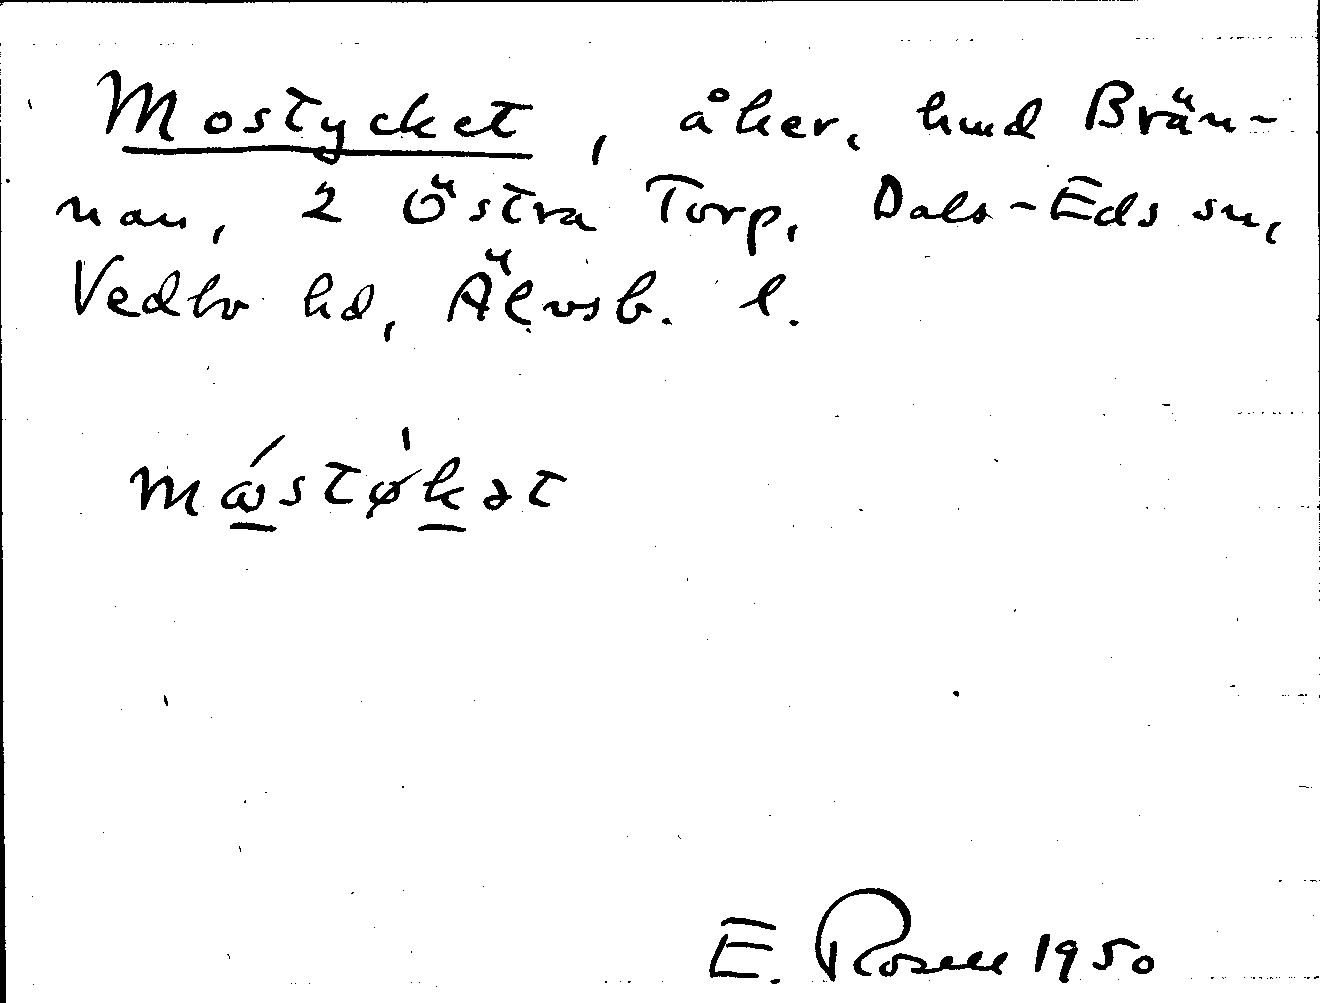 Mostycket, åker, hmd Brän-
nan, 2 Östra Torp, Dals-Eds sn,
Vedbo hd, Älvsb. l.
E. Rosell 1950